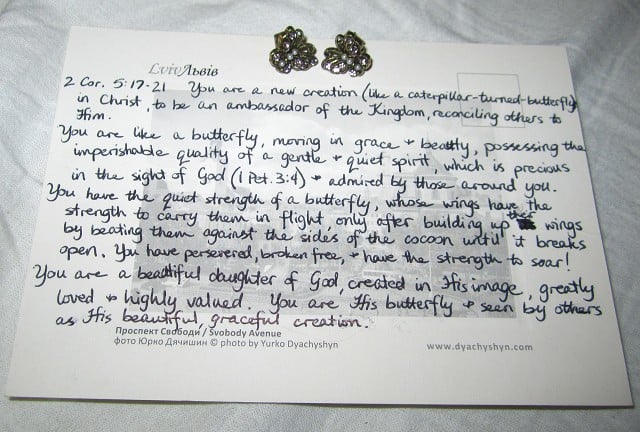 LvivЛьвів
2 Cor. 5:17-21 You are a new creation (like a caterpillar-turned-butterfly)
in Christ, to be an ambassador of the Kingdom, reconciling others to
Him.
You are like a butterfly, moving in grace + beauty, possessing the
imperishable quality of a gentle + quiet spirit, which is precious
in the sight of God (1 Pet. 3:4) + admired by those around you.
You have the quiet strength of a butterfly, whose wings have the
strength to carry them in flight, only after building up their wings
by beating them against the sides of the cocoon until it breaks
open. You have persevered, broken free, + have the strength to soar!
You are a beautiful daughter of God, created in His image, greatly
loved + highly valued. You are His butterfly + seen by others
as His beautiful, graceful creation.
Проспект Свободи / Svobody Avenue
фото Юрко Дячишин © photo by Yurko Dyachyshyn
www.dyachyshyn.com